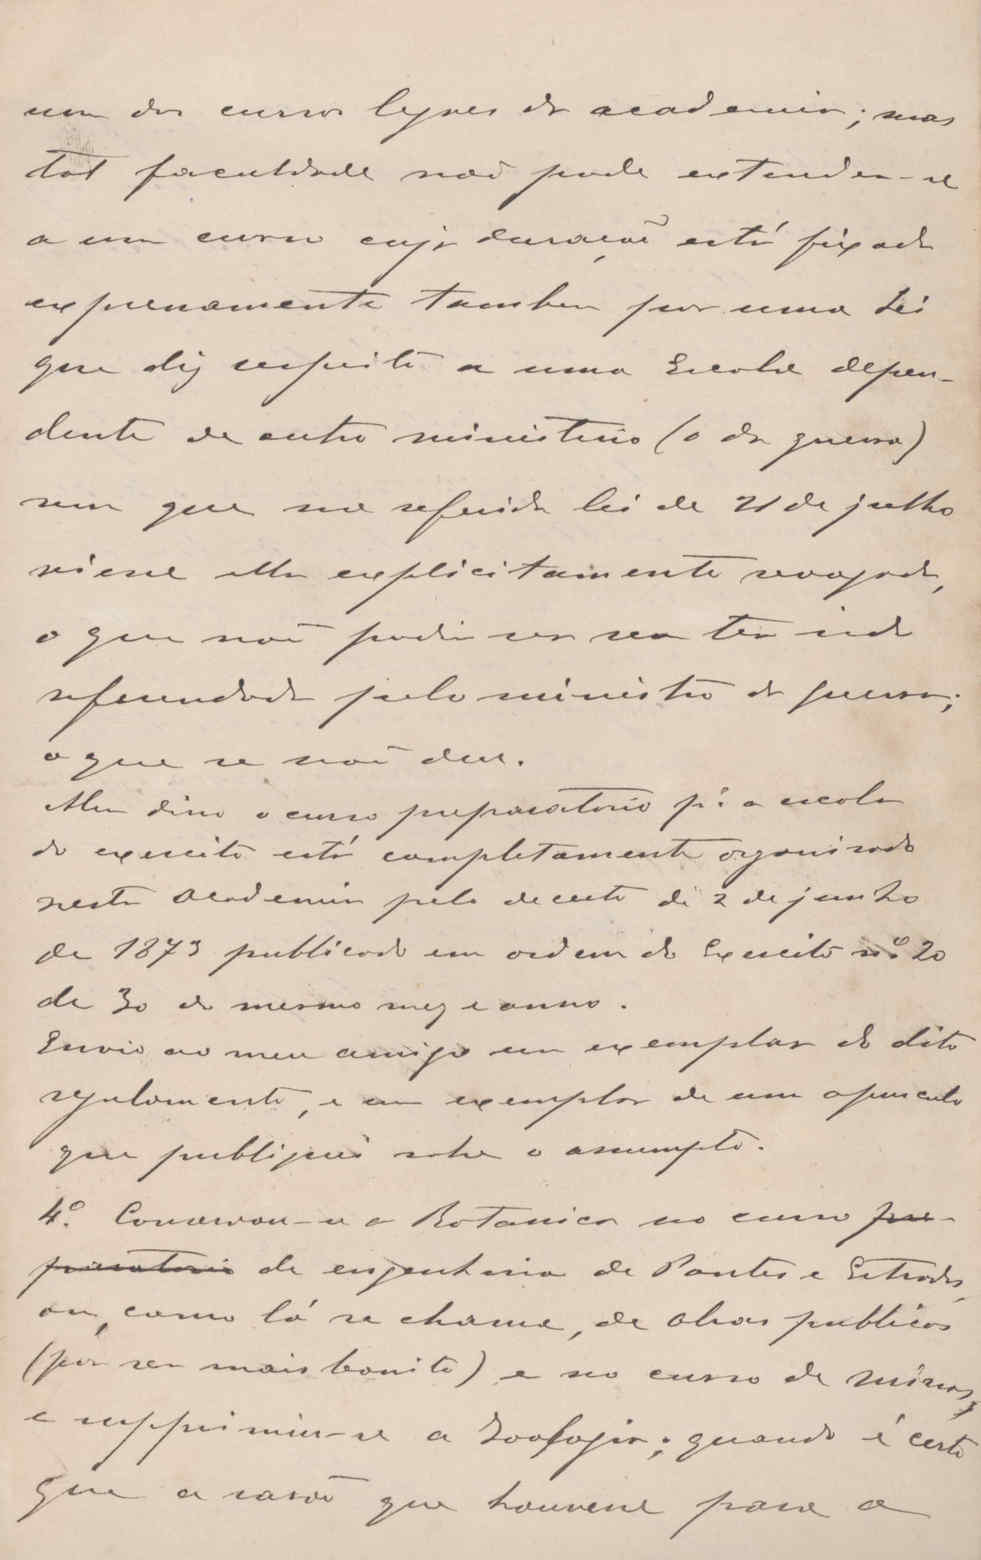 um dos cursos legaes da academia; mas
tal faculdade não pode extender-se
a um curso cuja duração está fixada
expressamente tambem por uma Lei
que diz respeito a uma Escola depen-
dente de outro ministerio (o da guerra)
sem que na referida lei de 21 de julho
viesse ella explicitamente revogada,
o que não podia ser sem ter sido
referendada pelo ministro da guerra;
o que se não deu.
Alem disso o curso preparatorio pª a escola
do exercito está completamente organisado
nesta Academia pelo decreto de 2 de junho
de 1873 publicado em ordem do Exercito nº 20
de 30 do mesmo mez e anno.
Envio ao meu amigo um exemplar do dito
regulamento, e um exemplar de um opusculo
que publiquei sobre o assumpto.
4º. Conservou-se a Botanica no curso pre-
paratorio de engenharia de Pontes e Estradas,
ou, como lá se chama, de obras publicas
(por ser mais bonito) e no curso de Minas,
e supprimiu-se a Zoologia; quando é certo
que a rasão que houvesse para a